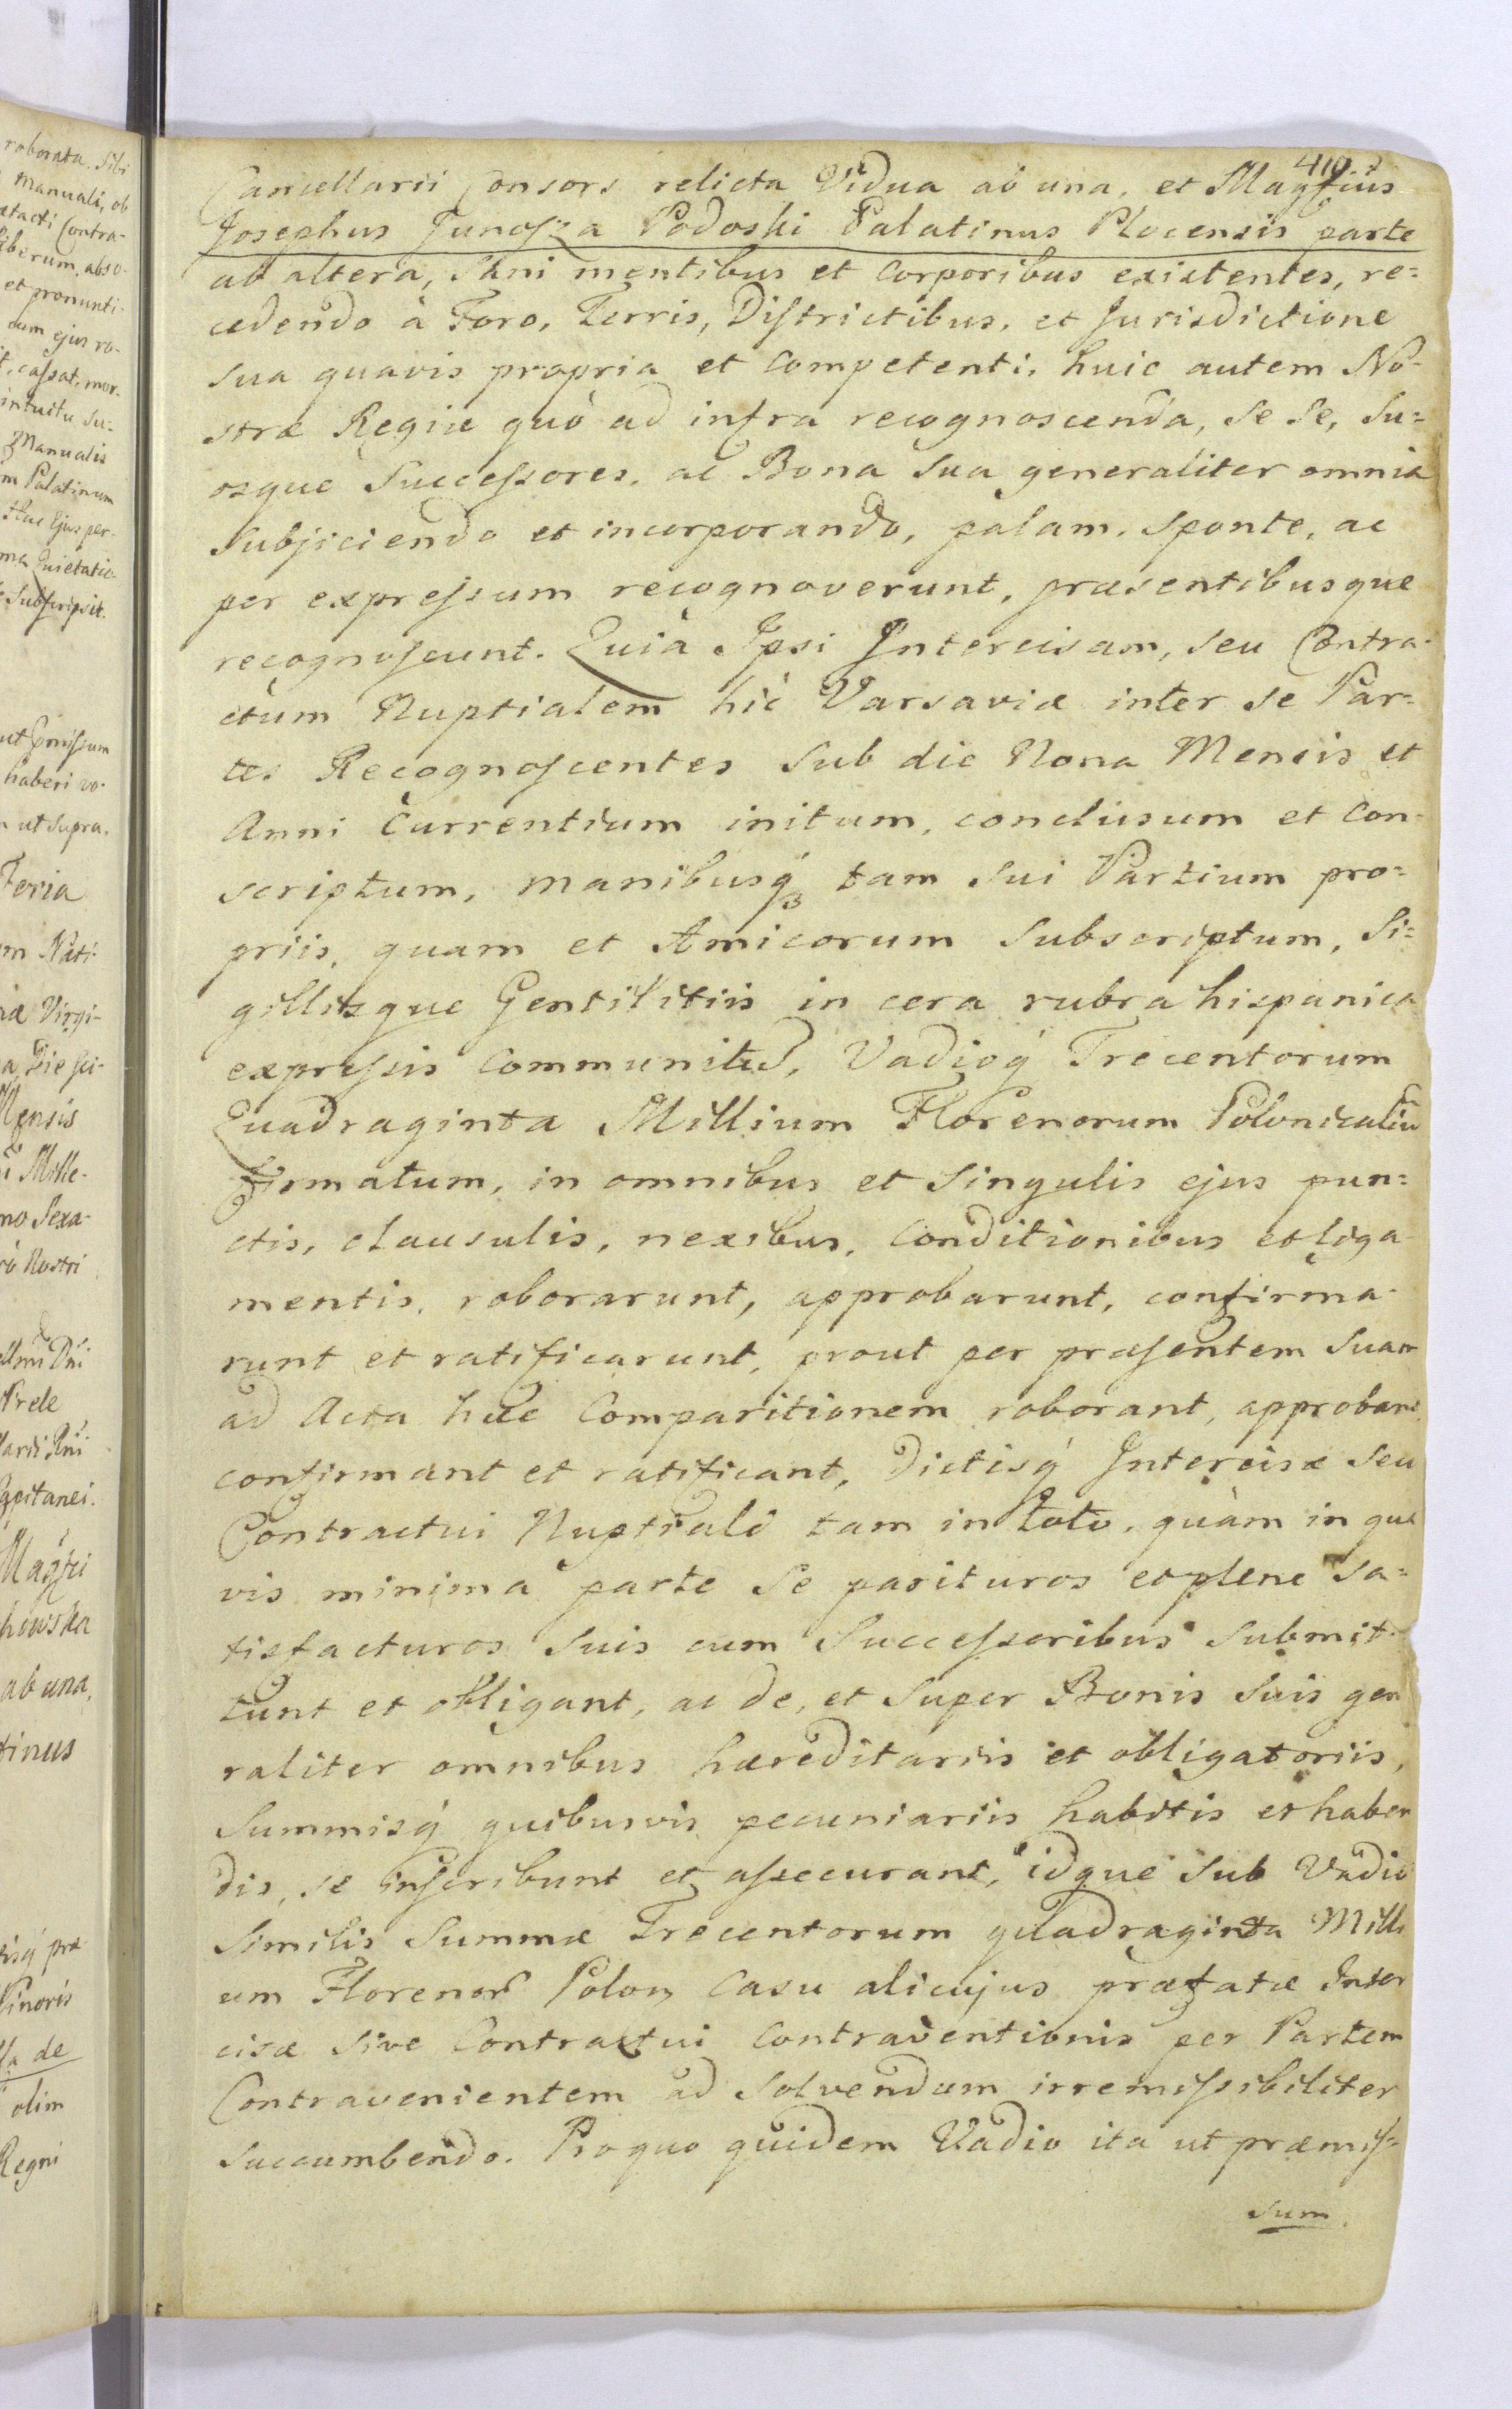 410
Cancellarii Consors relicta Vidua ab una, et Magfcus
Josephus Junosza Podoski Palatinus Plocensis parte
ab altera, Sani mentibus et Corporibus existentes, re=
cedendo à Foro, Terris, Districtibus, et Jurisdictione
sua quavis propria et Competenti, huic autem No-
stræ Regiæ quò ad infra recognoscenda, Se Se, Su=
osque Successores, ac Bona Sua generaliter omnia
Subjiciendo et incorporando, palam, Sponte, ac
per expressum recognoverunt, præsentibusque
recognoscunt. Quia Ipsi Intercisam, seu Contra-
ctum Nuptialem hic Varsaviæ inter se Par=
tes Recognoscentes Sub die Nona Mensis et
Anni Currentium initum, conclusum et con-
scriptum, manibusq tam Sui Partium pro=
priis, quam et Amicorum Subscriptum, Si=
gillisque Gentilitiis in cera rubra hispanica
expressis Communitu, Vadioq Trecentorum
Quadraginta Millium Florenorum Polonicaliu
Firmatum, in omnibus et Singulis ejus pun=
ctis, clausulis, nexibus, Conditionibus et liga-
mentis, roborarunt, approbarunt, confirma-
runt et ratificarunt, prout per præsentem Suam
ad Acta hæc Comparitionem roborant, approbant
confirmant et ratificant, Dictisq Intercisæ Seu
Contractui Nuptiali tam in toto, quàm in qua
vis minima parte Se parituros et plene Sa=
tisfacturos Suis cum Successoribus Submit-
tunt et obligant, ac de, et Super Bonis Suis gen
raliter omnibus hæreditariis et obligatoriis,
Summisq quibusvis pecuniariis habitis et haben
dis, se inscribunt et assecurant, idque Sub Vadio
Similis Summæ Trecentorum quadraginta Milli
um Florenor Polon Casu alicujus præfatæ Inter
cisæ Sive Contractui Contraventionis per Partem
Contravenientem ad Solvendum irremissibiliter
Succumbendo. Pro quo quidem Vadio ita ut præmis=
sum